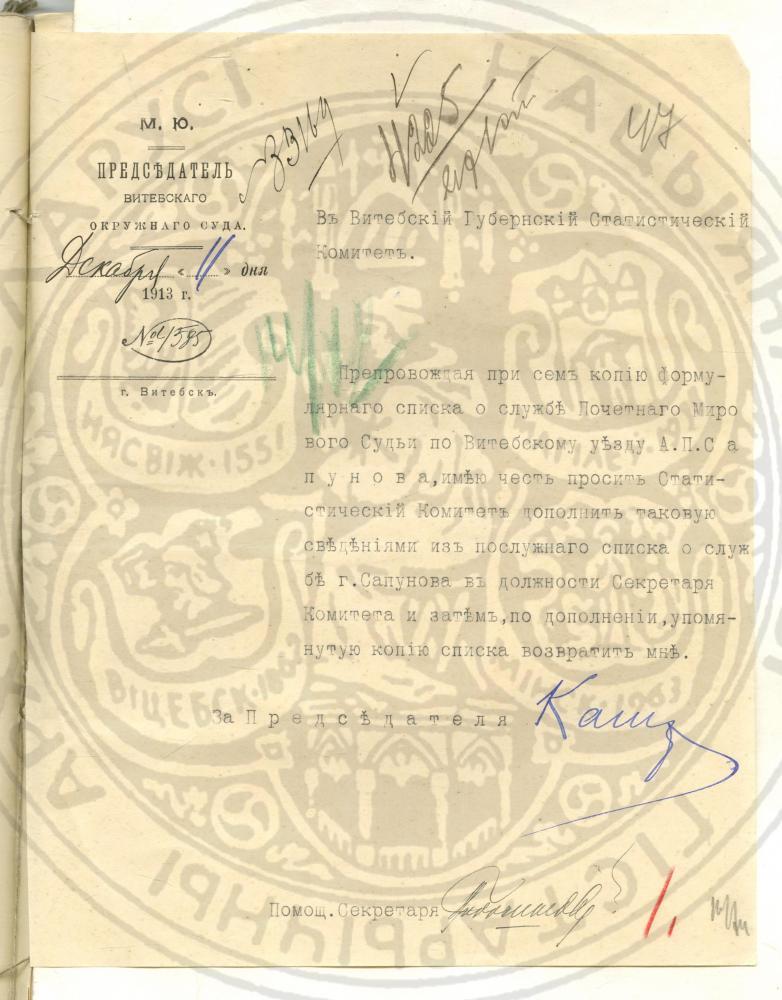 М. Ю.
ПРЕДСѢДАТЕЛЬ
ВИТЕБСКАГО
ОКРУЖНАГО СУДА.
Декабря « 11 » дня
1913 г.
г. Витебскъ.
47
Въ Витебскій Губернскій Статистическій
Комитетъ.
Препровождая при семъ копію форму-
лярнаго списка о службѣ Почетнаго Миро
вого Судьи по Витебскому уѣзду А.П.С а
п у н о в а,имѣю честь просить Стати-
стическій Комитетъ дополнить таковую
свѣдѣніями изъ послужнаго списка о служ
бѣ г.Сапунова въ должности Секретаря
Комитета и затѣмъ,по дополненіи,упомя-
нутую копію списка возвратить мнѣ.
За П р е д с ѣ д а т е л я
Помощ.Секретаря
НЯСВІЖ·155
ВІЦЕБСК·